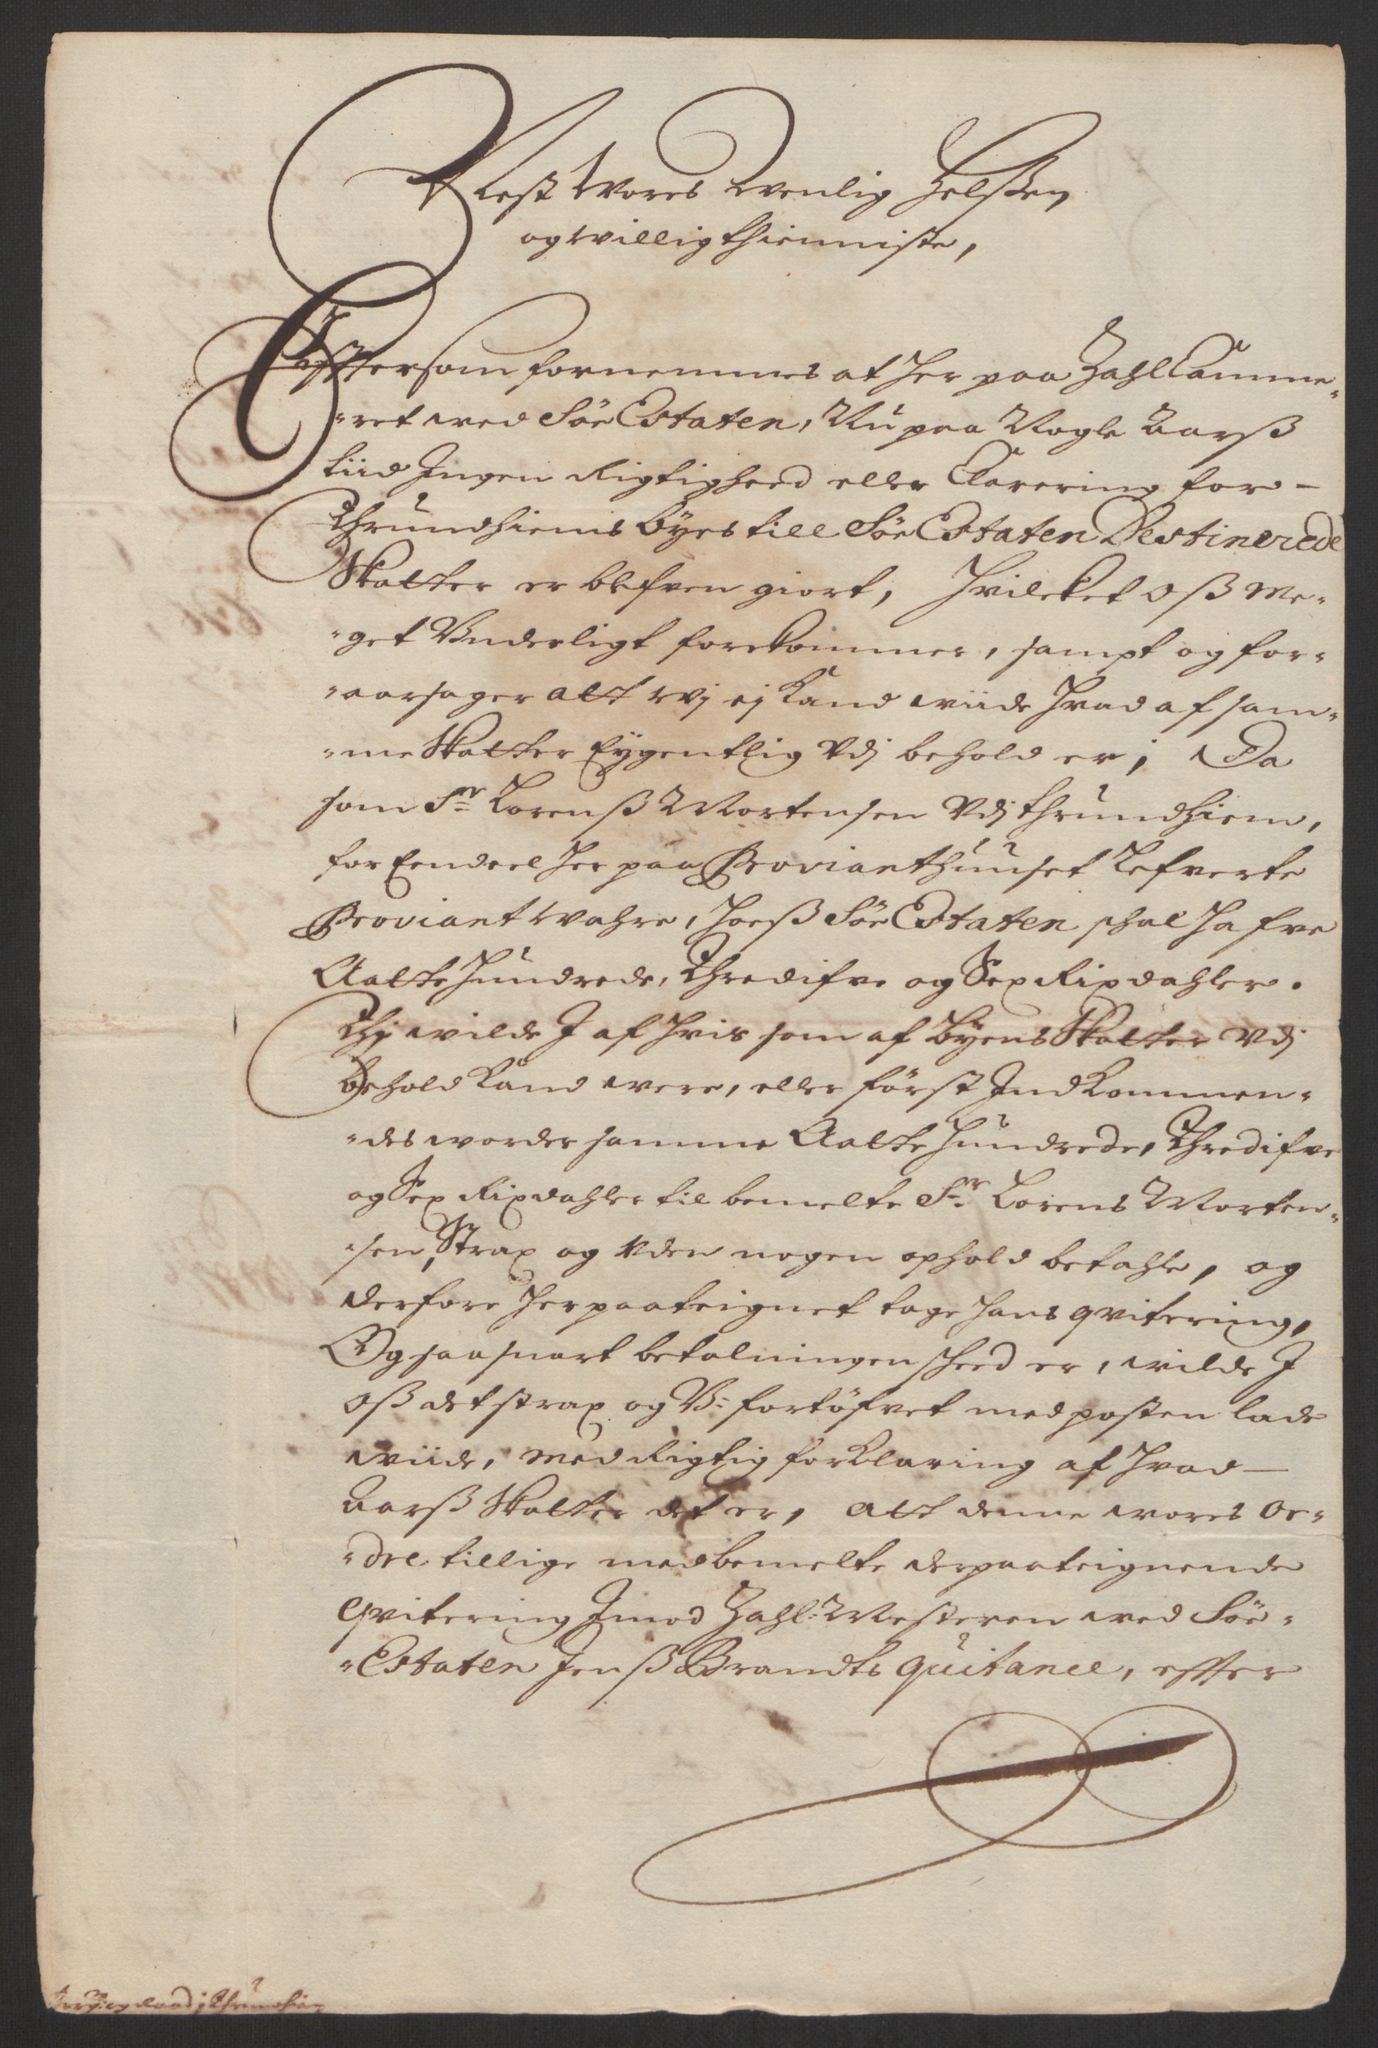 Nest Wores Wenlig Helßen
og willig thienniste,
Effttersom fornemmes at her paa ZahlCamme-
-ret wed Söe Estaten, Nu paa Nogle Aarß
tiid Ingen Rigtigheed eller Clarering for
Thrundhiems Byes till Söe Estaten Destinerede
Skatter er blefven giort, Hvilcket oß me-
-get Underligt forekommer, sampt og for-
-aarsager att wj ej kand wiide hvad af sam-
-me Skatter Eygentlig Udj behold er; Da
som Sr Lorenß Mortensen Udj thrundhiem,
for Eendeel her paa Provianthuuset Lefverte
Proviant wahre, hoeß Söe Estaten schal hafve
Aatte hundrede, Thredifve og Sex Rixdahler.
Thj wilde I af hvis som af Byens Skatter Udj
Behold kand were, eller först Indkommen-
-des worder samme Aatte hundrede, Thredifve
og Sex Rixdahler til bemelte Sr Lorens Morten-
-sen, Strax og uden nogen ophold betahle, og
derfore herpaateignet tage hans qvitering,
Og saa snart betalningen scheed er, wilde I
oß det strax og U: fortöfvet med posten lade
wiide, med Rigtig forklaring af hvad
Aarß Skatter det er, att denne wores or-
-dre tillige med bemelte derpaateignende
qvitering Imod Zahl-Mesteren wed Söe-
-Estaten Jenß Brandts quitance, effter